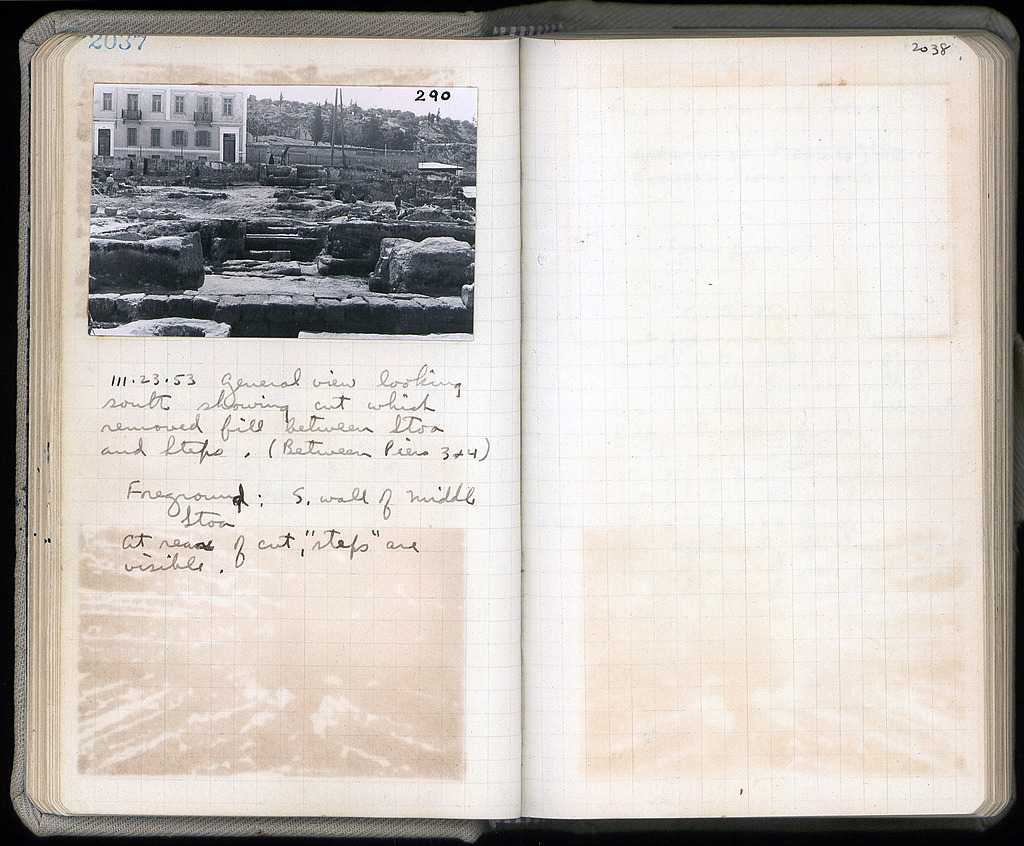 2037
290
III.23.53 General view looking
south showing cut which
removed fill between Stoa
and Steps. (Between Piers 3+4)
Foreground: S. wall of Middle
Stoa
At rear of cut, "steps" are
visible.
2038